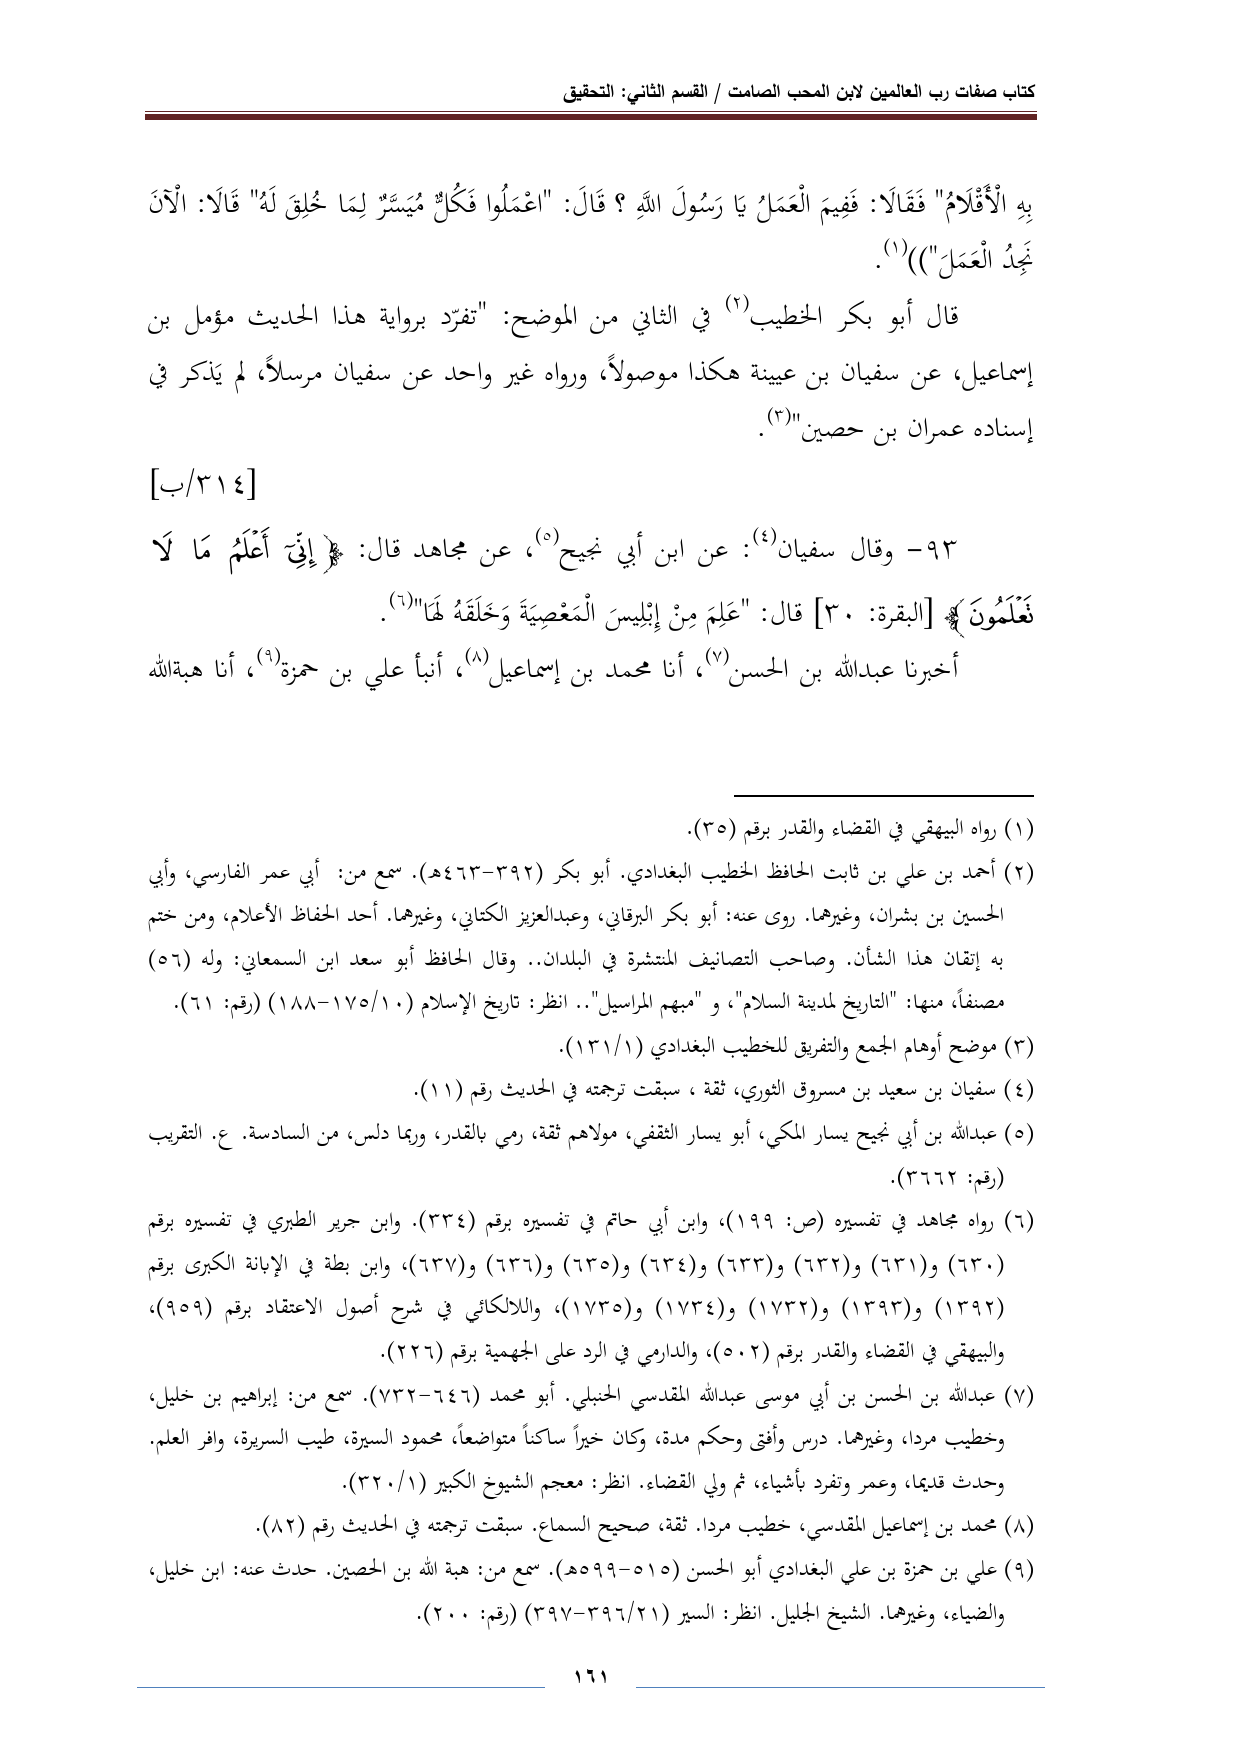 كتاب صفات رب العالمين لابن المحب الصامت / القسم الثاني: التحقيق
بِهِ الْأَقْلَامُ" فَقَالَا: فَفِيمَ الْعَمَلُ يَا رَسُولَ اللَّهِ ؟ قَالَ: "اعْمَلُوا فَكُلٌّ مُيَسَّرٌ لِمَا خُلِقَ لَهُ" قَالَا: الْآنَ
نَجِدُ الْعَمَلَ"))(١).
قال أبو بكر الخطيب(٢) في الثاني من الموضح: "تفرّد برواية هذا الحديث مؤمل بن
إسماعيل، عن سفيان بن عيينة هكذا موصولاً، ورواه غير واحد عن سفيان مرسلاً، لم يَذكر في
إسناده عمران بن حصين"(٣).
[٣١٤/ب]
٩٣- وقال سفيان(٤): عن ابن أبي نجيح(٥)، عن مجاهد قال: ﴿ إِنِّيٓ أَعْلَمُ مَا لَا
تَعْلَمُونَ ﴾ [البقرة: ٣٠] قال: "عَلِمَ مِنْ إِبْلِيسَ الْمَعْصِيَةَ وَخَلَقَهُ لَهَا"(٦).
أخبرنا عبدالله بن الحسن(٧)، أنا محمد بن إسماعيل(٨)، أنبأ علي بن حمزة(٩)، أنا هبةالله
(١) رواه البيهقي في القضاء والقدر برقم (٣٥).
(٢) أحمد بن علي بن ثابت الحافظ الخطيب البغدادي. أبو بكر (٣٩٢-٤٦٣هـ). سمع من: أبي عمر الفارسي، وأبي
الحسين بن بشران، وغيرهما. روى عنه: أبو بكر البرقاني، وعبدالعزيز الكتاني، وغيرهما. أحد الحفاظ الأعلام، ومن ختم
به إتقان هذا الشأن. وصاحب التصانيف المنتشرة في البلدان.. وقال الحافظ أبو سعد ابن السمعاني: وله (٥٦)
مصنفاً، منها: "التاريخ لمدينة السلام"، و "مبهم المراسيل".. انظر: تاريخ الإسلام (١٧٥/١٠-١٨٨) (رقم: ٦١).
(٣) موضح أوهام الجمع والتفريق للخطيب البغدادي (١٣١/١).
(٤) سفيان بن سعيد بن مسروق الثوري، ثقة ، سبقت ترجمته في الحديث رقم (١١).
(٥) عبدالله بن أبي نجيح يسار المكي، أبو يسار الثقفي، مولاهم ثقة، رمي بالقدر، وربما دلس، من السادسة. ع. التقريب
(رقم: ٣٦٦٢).
(٦) رواه مجاهد في تفسيره (ص: ١٩٩)، وابن أبي حاتم في تفسيره برقم (٣٣٤). وابن جرير الطبري في تفسيره برقم
(٦٣٠) و(٦٣١) و(٦٣٢) و(٦٣٣) و(٦٣٤) و(٦٣٥) و(٦٣٦) و(٦٣٧)، وابن بطة في الإبانة الكبرى برقم
(١٣٩٢) و(١٣٩٣) و(١٧٣٢) و(١٧٣٤) و(١٧٣٥)، واللالكائي في شرح أصول الاعتقاد برقم (٩٥٩)،
والبيهقي في القضاء والقدر برقم (٥٠٢)، والدارمي في الرد على الجهمية برقم (٢٢٦).
(٧) عبدالله بن الحسن بن أبي موسى عبدالله المقدسي الحنبلي. أبو محمد (٦٤٦-٧٣٢). سمع من: إبراهيم بن خليل،
وخطيب مردا، وغيرهما. درس وأفتى وحكم مدة، وكان خيراً ساكناً متواضعاً، محمود السيرة، طيب السريرة، وافر العلم.
وحدث قديما، وعمر وتفرد بأشياء، ثم ولي القضاء. انظر: معجم الشيوخ الكبير (٣٢٠/١).
(٨) محمد بن إسماعيل المقدسي، خطيب مردا. ثقة، صحيح السماع. سبقت ترجمته في الحديث رقم (٨٢).
(٩) علي بن حمزة بن علي البغدادي أبو الحسن (٥١٥-٥٩٩هـ). سمع من: هبة الله بن الحصين. حدث عنه: ابن خليل،
والضياء، وغيرهما. الشيخ الجليل. انظر: السير (٣٩٦/٢١-٣٩٧) (رقم: ٢٠٠).
١٦١